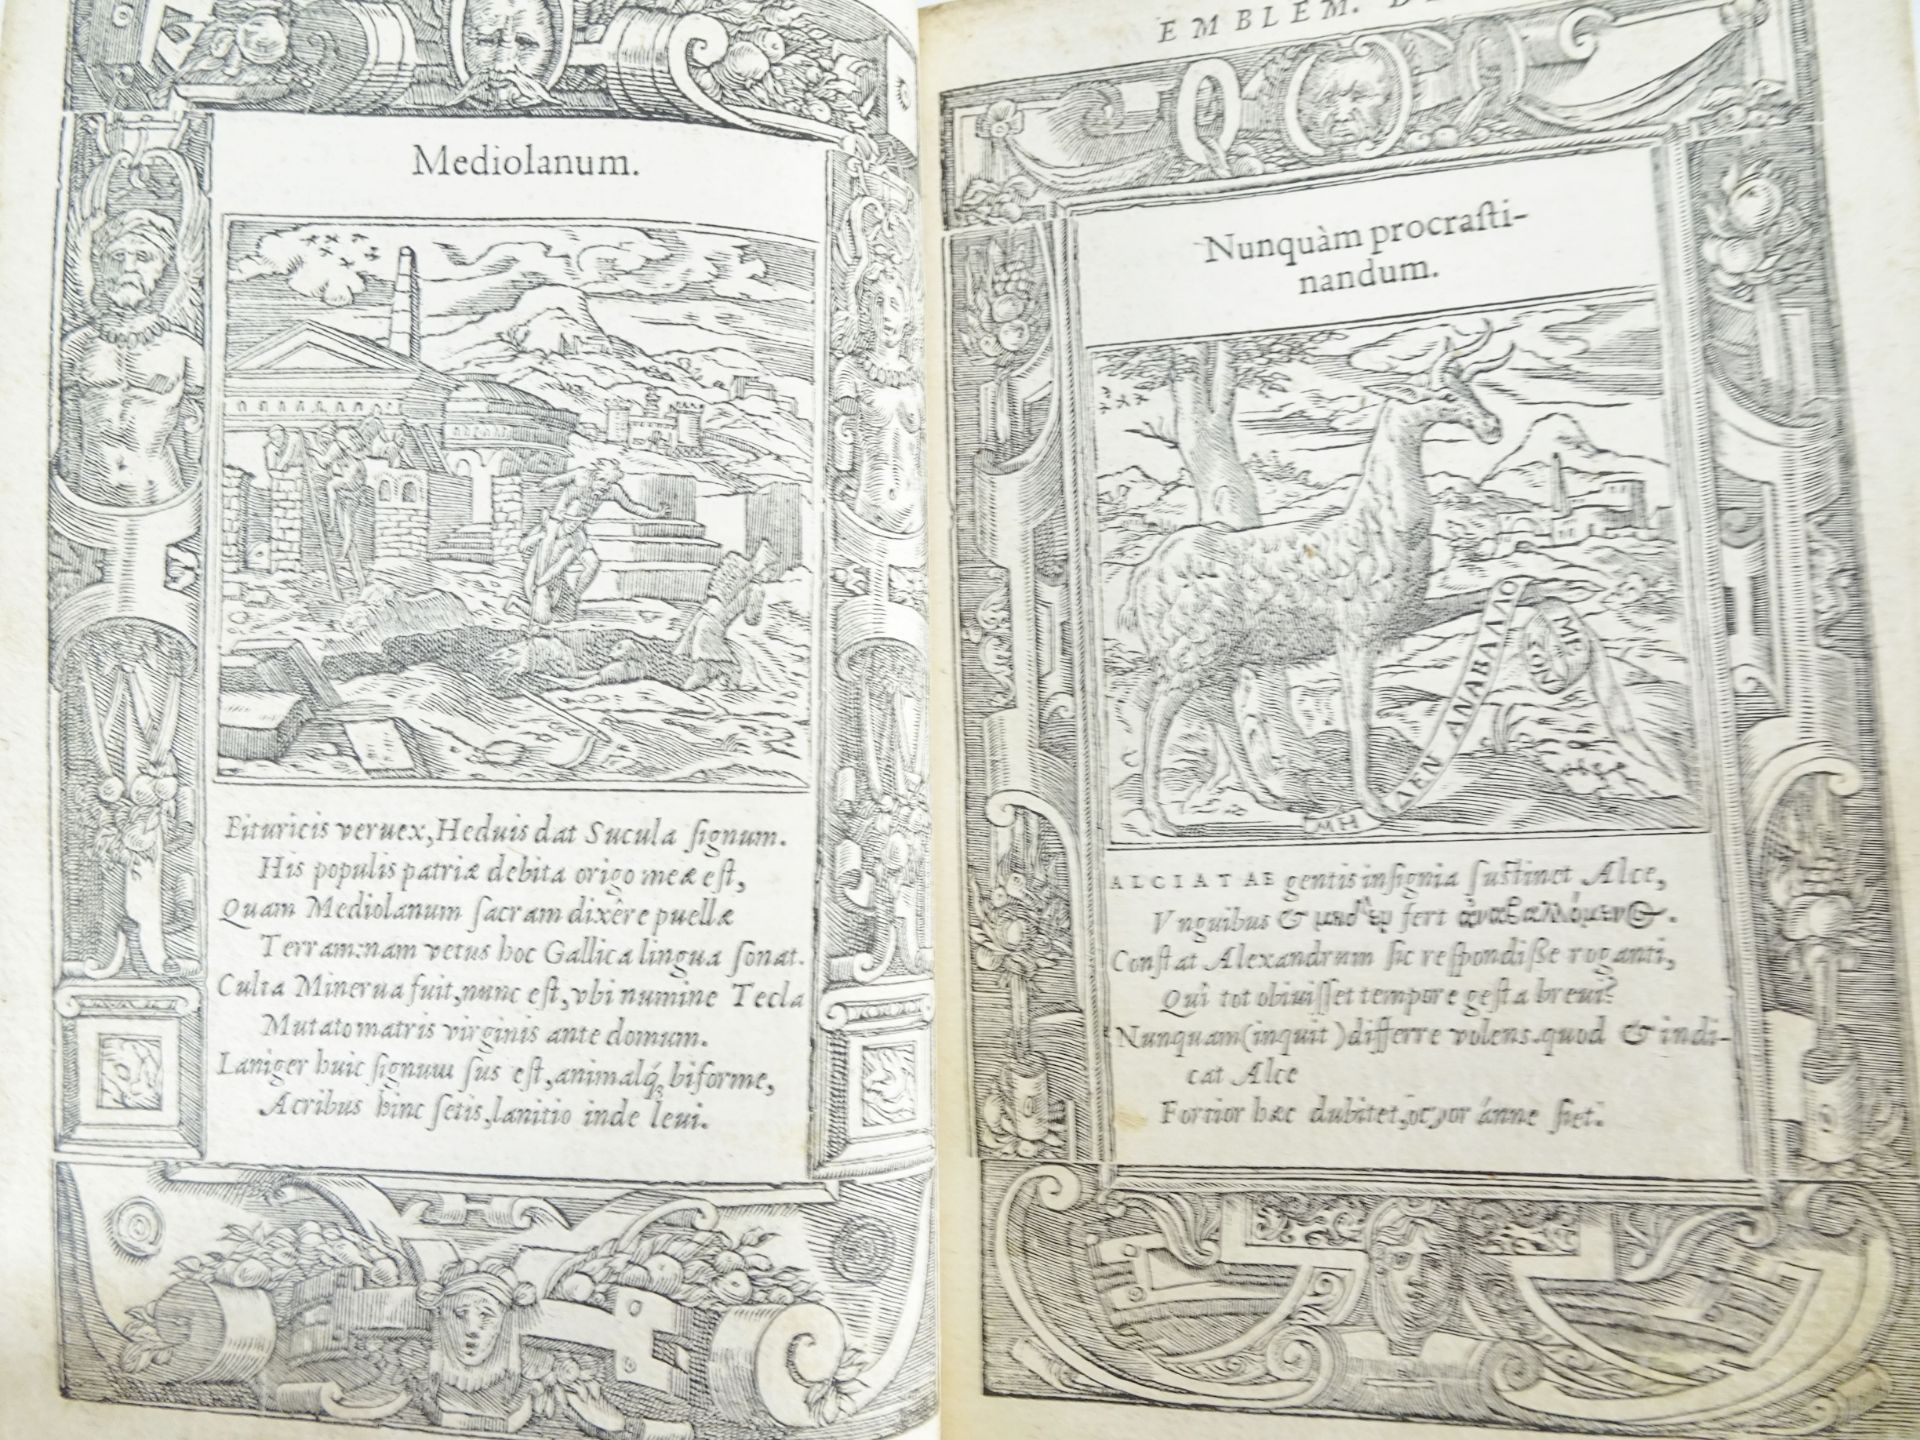 Mediolanum.
Bituricis veruex, Heduis dat Sucula ſignum.
His populis patriæ debita origo meæ eſt,
Quam Mediolanum ſacram dixêre puellæ
Terram: nam vetus hoc Gallica lingua ſonat.
Culta Minerua fuit, nunc eſt, vbi numine Tecla
Mutato matris virginis ante domum.
Laniger huic ſignum ſus eſt, animalq́, biforme,
Acribus hinc ſetis, lanitio inde leui.
EMBLEM.
Nunquàm procraſti-
nandum.
ΜΗ ΔΕΝ ΑΝΑΒΑΛΛΟ
ΜΕ
ΝΟΝ
ALCIATAE gentis inſignia ſuſtinet Alce,
Vnguibus & μηδὲν fert ἀναβαλλόμενος.
Conſtat Alexandrum ſic reſpondiſſe roganti,
Qui tot obiuiſſet tempore geſta breui?
Nunquam (inquit) differre volens. quod & indi-
cat Alce
Fortior hæc dubitet, ocyor ánne ſiet.